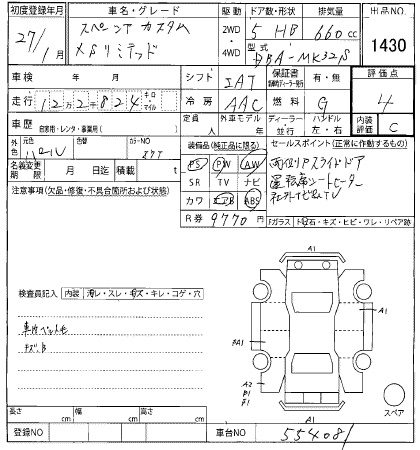 初度登録年月 車名・グレード 駆動 ドア数・形状 排気量 出品NO
27年 1月 スペーシア カスタム XSリミテッド 2WD・4WD 5 HB 660cc 1430
型式 DBA-MK32S
車検 年 月 シフト IAT 保証書 有・無 評価点
走行 122824 キロ マイル 冷房 AAC 燃料 G 4
車歴 自家用・レンタ・事業用( ) 定員 人 外車モデル 年 ディーラー・並行 ハンドル 左・右 内装評価 C
外色 元色 パール 色替 カラーNO ZVT
装備品(純正品に限る) セールスポイント(正常に作動するもの)
PS PW AW 両側Pスライドドア
名義変更期限 月 日迄 積載 t
SR TV ナビ 運転席シートヒーター
注意事項(欠品・修復・不具合箇所および状態)
カワ エアB ABS 社外ナビ&TV
R券 9770円
Fガラス ト飛石・キズ・ヒビ・ワレ・リペア跡
検査員記入 内装 汚レ・スレ・キズ・キレ・コゲ・穴
車内ペット毛
キズ、B
A1
A1
BA1
A2
B1
F1
A1
スペア
長さ cm 幅 cm 高さ cm
登録NO 車台NO 554081